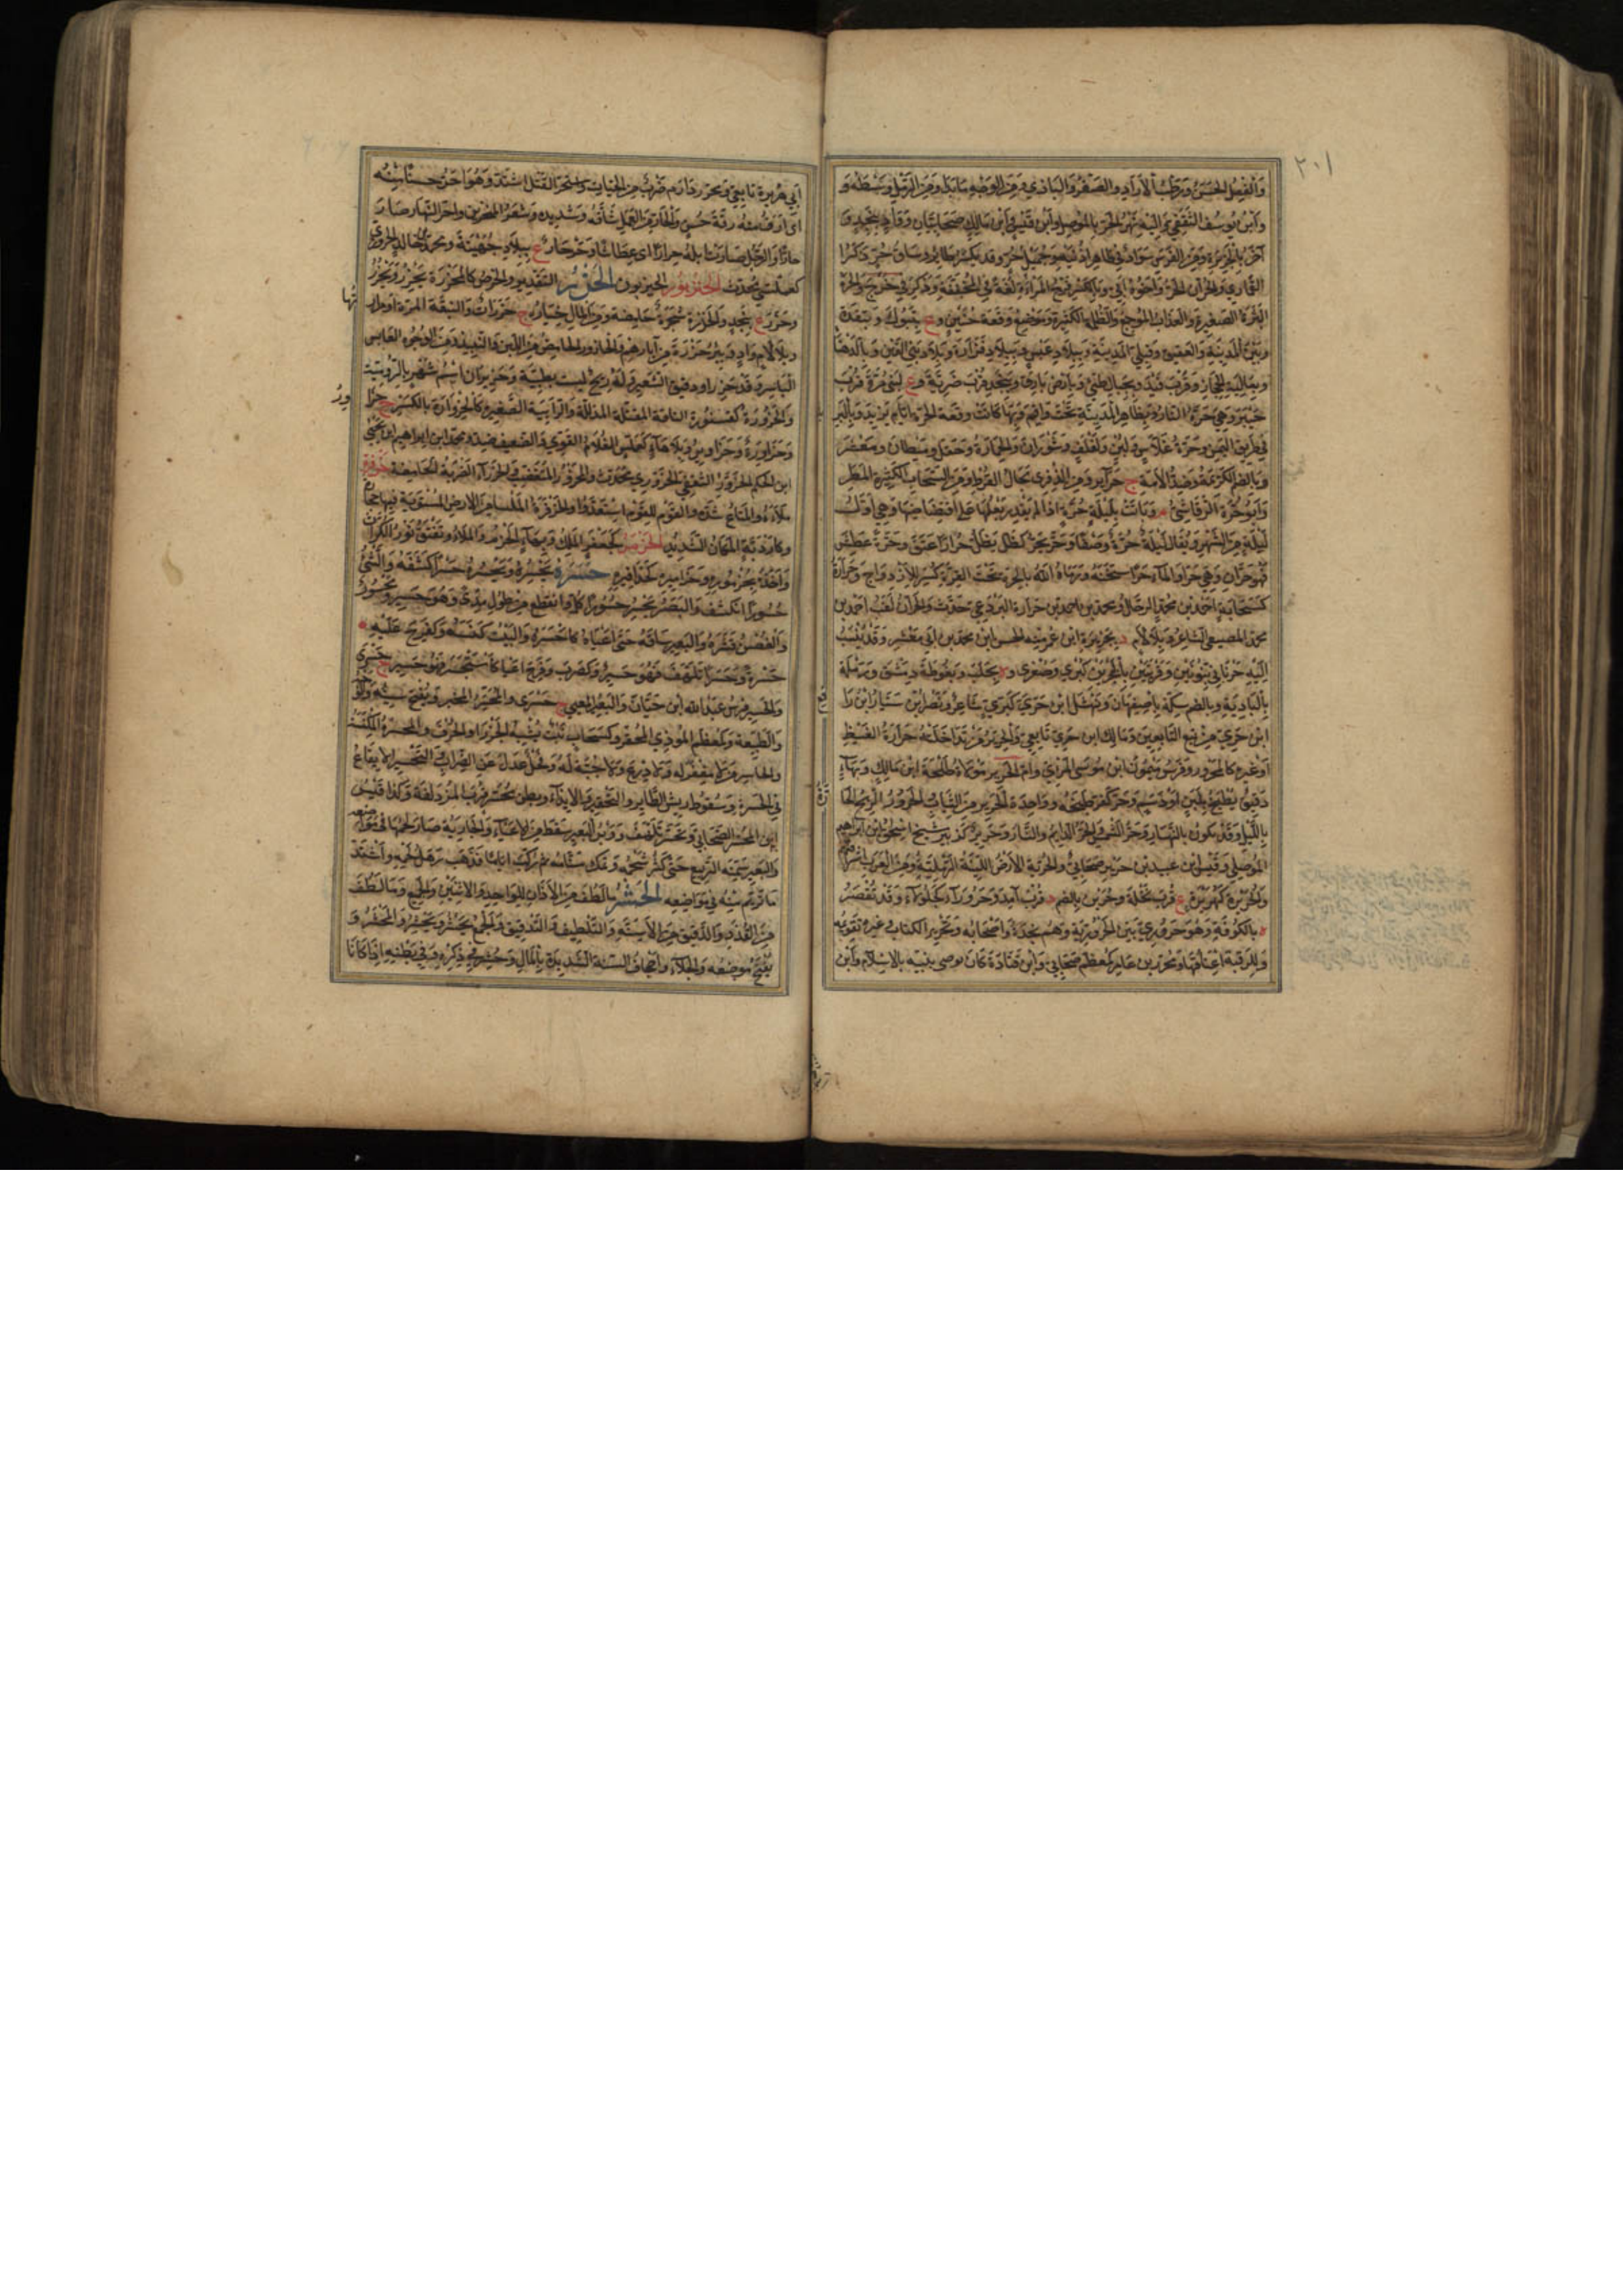 ٢٠١
والفعل الحسن ورطب الازاد والصقر والبازي ومن الوجه ما بدا ومن الرمل وسطه و
وابن يوسف الثقفي واليه نهر الحر بالموصل وابن قيس وابن مالك صحابيان وواد بنجد و
آخر بالجزيرة ومن الفرس سواد في ظاهر اذنيه وجميل حر وقد يكسر طائر وساق حر ذكر
القماري والحران الحر واخوه ابي وبالكسر فرج المرأة لغة في المخففة وذكر في خ رج والحرة
البثرة الصغيرة والعذاب الموجع والظلمة الكثيرة وموضع وقعة حنين و ع بتبوك وبنقدة
وبين المدينة والعقيق وقبلي المدينة وببلاد عبس وببلاد فزارة وببلاد بني القين وبالدهنا
وبعالية الحجاز وقرب فيد وبجبال طيئ وبارض بارق وبنجد قرب ضرية و ع لبني مرة قرب
خيبر وهي حرة النار وبظاهر المدينة تحت واقم وبها كانت وقعة الحرة ايام يزيد وبالبريك
في طريق اليمن وحرة غلاس ولبن ولفلف وشوران والحمارة وجفل وميطان ومعشر
وبالضم الكريمة وضد الامة ج حرائر ومن الذفرى مجال القرط ومن السحاب الكثيرة المطر
وابو حرة الرقاشي م وباتت بليلة حرة اذا لم يقدر بعلها على افتضاضها وهي اول
ليلة من الشهر ويقال ليلة حرة وصفا وحر يحر كظل يظل حرارا عتق وحرة عطش
فهو حران وهي حرى والماء حرا سخنه ورماه الله بالحرة تحت القرة كسر للازدواج وحرارة
كسحابة احمد بن محمد الرحال ومحمد بن احمد بن حرارة البرذعي حدث والحران لقب احمد بن
محمد المصيصي الشاعر وبلا لام د بجزيرة ابن عمر منه الحسن بن محمد بن ابي معشر وقد ينسب
اليه حرناني بنونين وقريتين بالبحرين كبرى وصغرى و ة بحلب وبغوطة دمشق ورملة
بالبادية وبالضم سكة باصفهان ونهشل ابن حري كبري شاعر ونصر ابن سيار ابن را
ابن حري من تبع التابعين ومالك ابن حري تابعي والحرير من تداخلته حرارة الغيظ
او غيره كالمحرور وفرس ميمون ابن موسى المرئي وام الحرير مولاة طلحة ابن مالك وبهاء
دقيق يطبخ بلبن او دسم وحر كفر طبخه وواحدة الحرير من الثياب والحرور الريح الحا
بالليل وقد تكون بالنهار وحر الشمس والحر الدائم والنار وحرير كزبير شيخ اسحق ابن ابراهيم
الموصلي وقيس بن عبيد بن حرير صحابي والحرية الارض اللينة الرملية ومن العرب اشرافهم
والحريرة كهريرة ع قرب نخلة وحرين بالضم د قرب آمد وحروراء كجلولاء وقد تقصر
ة بالكوفة وهو حروري بين الحرورية وهم نجدة واصحابه وتحرير الكتاب وغيره تقويمه
وللرقبة اعتاقها ومحرر بن عامر كمعظم صحابي وابن قتادة كان يوصي بنيه بالاسلام وابن
ابي هريرة تابعي ومحرر دارم ضرب من الحيات واستحر القتل اشتد وهو احر حسنا منه
اي ارق منه رقة حسن والحار من العمل شاقه وشديده وشعر المنخرين واحر النهار صار
حارا والرجل صارت ابله حرارا اي عطاشا وحرحار ع ببلاد جهينة ومحمد بن خالد الحروري
كعملسي محدث الحزنبور الحيزبون الحزر التقدير والخرص كالمحزرة يحزر ويحزر
وحزر ع بنجد والحزرة شجرة حامضة ومن المال خياره ج حزرات والنبقة المرة او مرارتها
وبلا لام واد وبئر حزرة من آبارهم والحازر الحامض من اللبن والنبيذ ومن الوجوه العابس
الباسر وقد حزر او دقيق الشعير وله ريح ليست بطيبة وحزيران اسم شهر بالرومية
والحزورة كقسورة الناقة المقتلة المذللة والرابية الصغيرة كالحزوارة بالكسر ج حزاور
وحزاورة وحزاوير وبلا هاء كعملس الغلام القوي والضعيف ضد ومحمد ابن ابراهيم ابن يحيى
ابن الحكم الحزور الثقفي الحزوري محدث والمحزور المتغضب والحزراء الضربة الحامضة حزفره
ملاءه والمتاع شده والقوم للقوم استعدوا والحزفرة الملساء من الارض المستوية فيها حجارة
وكاردبة المكان الشديد الحزمر كجعفر الملك وبهاء الحزم والملاء وتفتق نور الكراث
واخذه بحزموره وحزاميره كحذافيره حسره يحسره ويحسره حسرا كشفه والشيء
حسورا انكشف والبصر يحسر حسورا كل وانقطع من طول مدى وهو حسير ومحسور
والغصن قشره والبعير ساقه حتى اعياه كاحسره والبيت كنسه وكفرح عليه
حسرة وحسرا تلهف فهو حسير وكضرب وفرح اعيا كاستحسر فهو حسير ج حسرى
والحسير فرس عبد الله ابن حيان والبعير المعيي ج حسرى والمحسر المخبر ويفتح سينه والوجه
والطبيعة وكمعظم المؤذي المحقر وكسحاب نبت يشبه الجزر او الحرف والمحسرة المكنسة
والحاسر من لا مغفر له ولا درع ولا جنة له وفحل عدل عن الضراب والتحسير الايقاع
في الحسرة وسقوط ريش الطائر والتحقير والايذاء وبطن محسر قرب المزدلفة وكذا قيس
ابن المحسر الصحابي وتحسر تلهف ووبر البعير سقط من الاعياء والجارية صار لحمها في مواضعه
والبعير سمنه الربيع حتى كثر شحمه وتمك سنامه ثم ركب اياما فذهب رهل لحمه واشتد
ما تزيم منه في مواضعه الحشر ما لطف من الآذان للواحد والاثنين والجمع وما لطف
من القذذ والدقيق من الاسنة والتلطيف والتدقيق والجمع يحشر ويحشر والمحشر و
يفتح موضعه والجلاء واجحاف السنة الشديدة بالمال وحشر في ذكره وفي بطنه اذا كانا